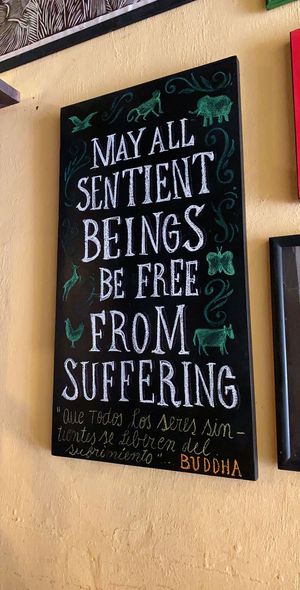 MAY ALL
SENTIENT
BEINGS
BE FREE
FROM
SUFFERING
"Que todos los seres sin-
tientes se libiren del
sufrimiento"... BUDDHA